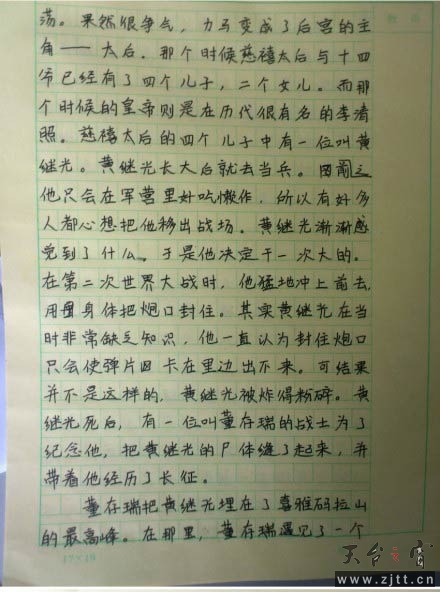 荡。果然很争气，力马变成了后宫的主
角——太后。那个时候慈禧太后与十四
爷已经有了四个儿子，二个女儿。而那
个时候的皇帝则是在历代很有名的李清
照。慈禧太后的四个儿子中有一位叫黄
继光。黄继光长大后就去当兵。因
他只会在军营里好吃懒作，所以有好多
人都心想把他移出战场。黄继光渐渐感
觉到了什么。于是他决定干一次大的。
在第二次世界大战时，他猛地冲上前去，
用身体把炮口封住。其实黄继光在当
时非常缺乏知识，他一直认为封住炮口
只会使弹片卡在里边出不来。可结果
并不是这样的，黄继光被炸得粉碎。黄
继光死后，有一位叫董存瑞的战士为了
纪念他，把黄继光的尸体缝了起来，并
带着他经历了长征。
董存瑞把黄继光埋在了喜雅码拉山
的最高峰。在那里，董存瑞遇见了一个
17×18
天台之窗
www.zjtt.cn